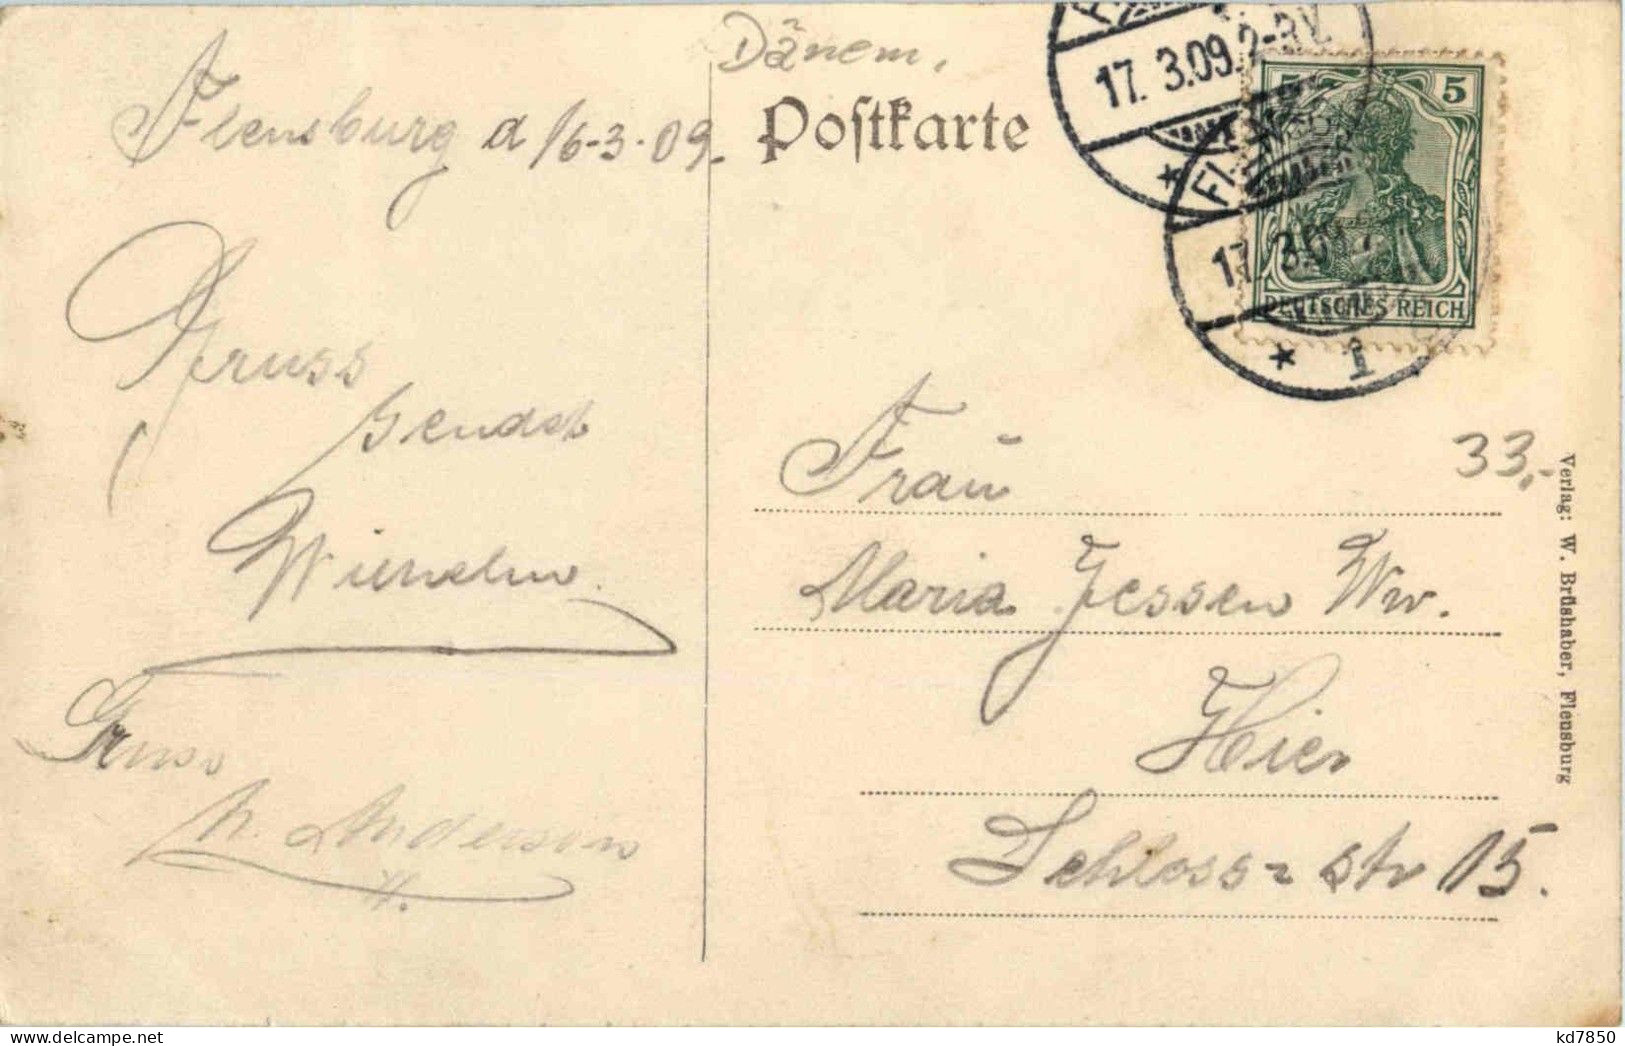 Dänem.
Postkarte
Flensburg d 16-3-09.
Gruss
sendet
Wilhelm.
Gruss
N. Anderson
Frau
Maria Jessen Ww.
Hier
Schloss-str 15.
33,-
17. 3.09. 2-3N.
17. 3.09.
* 1
5 5
DEUTSCHES REICH
Verlag: W. Brüshaber, Flensburg
kd7850